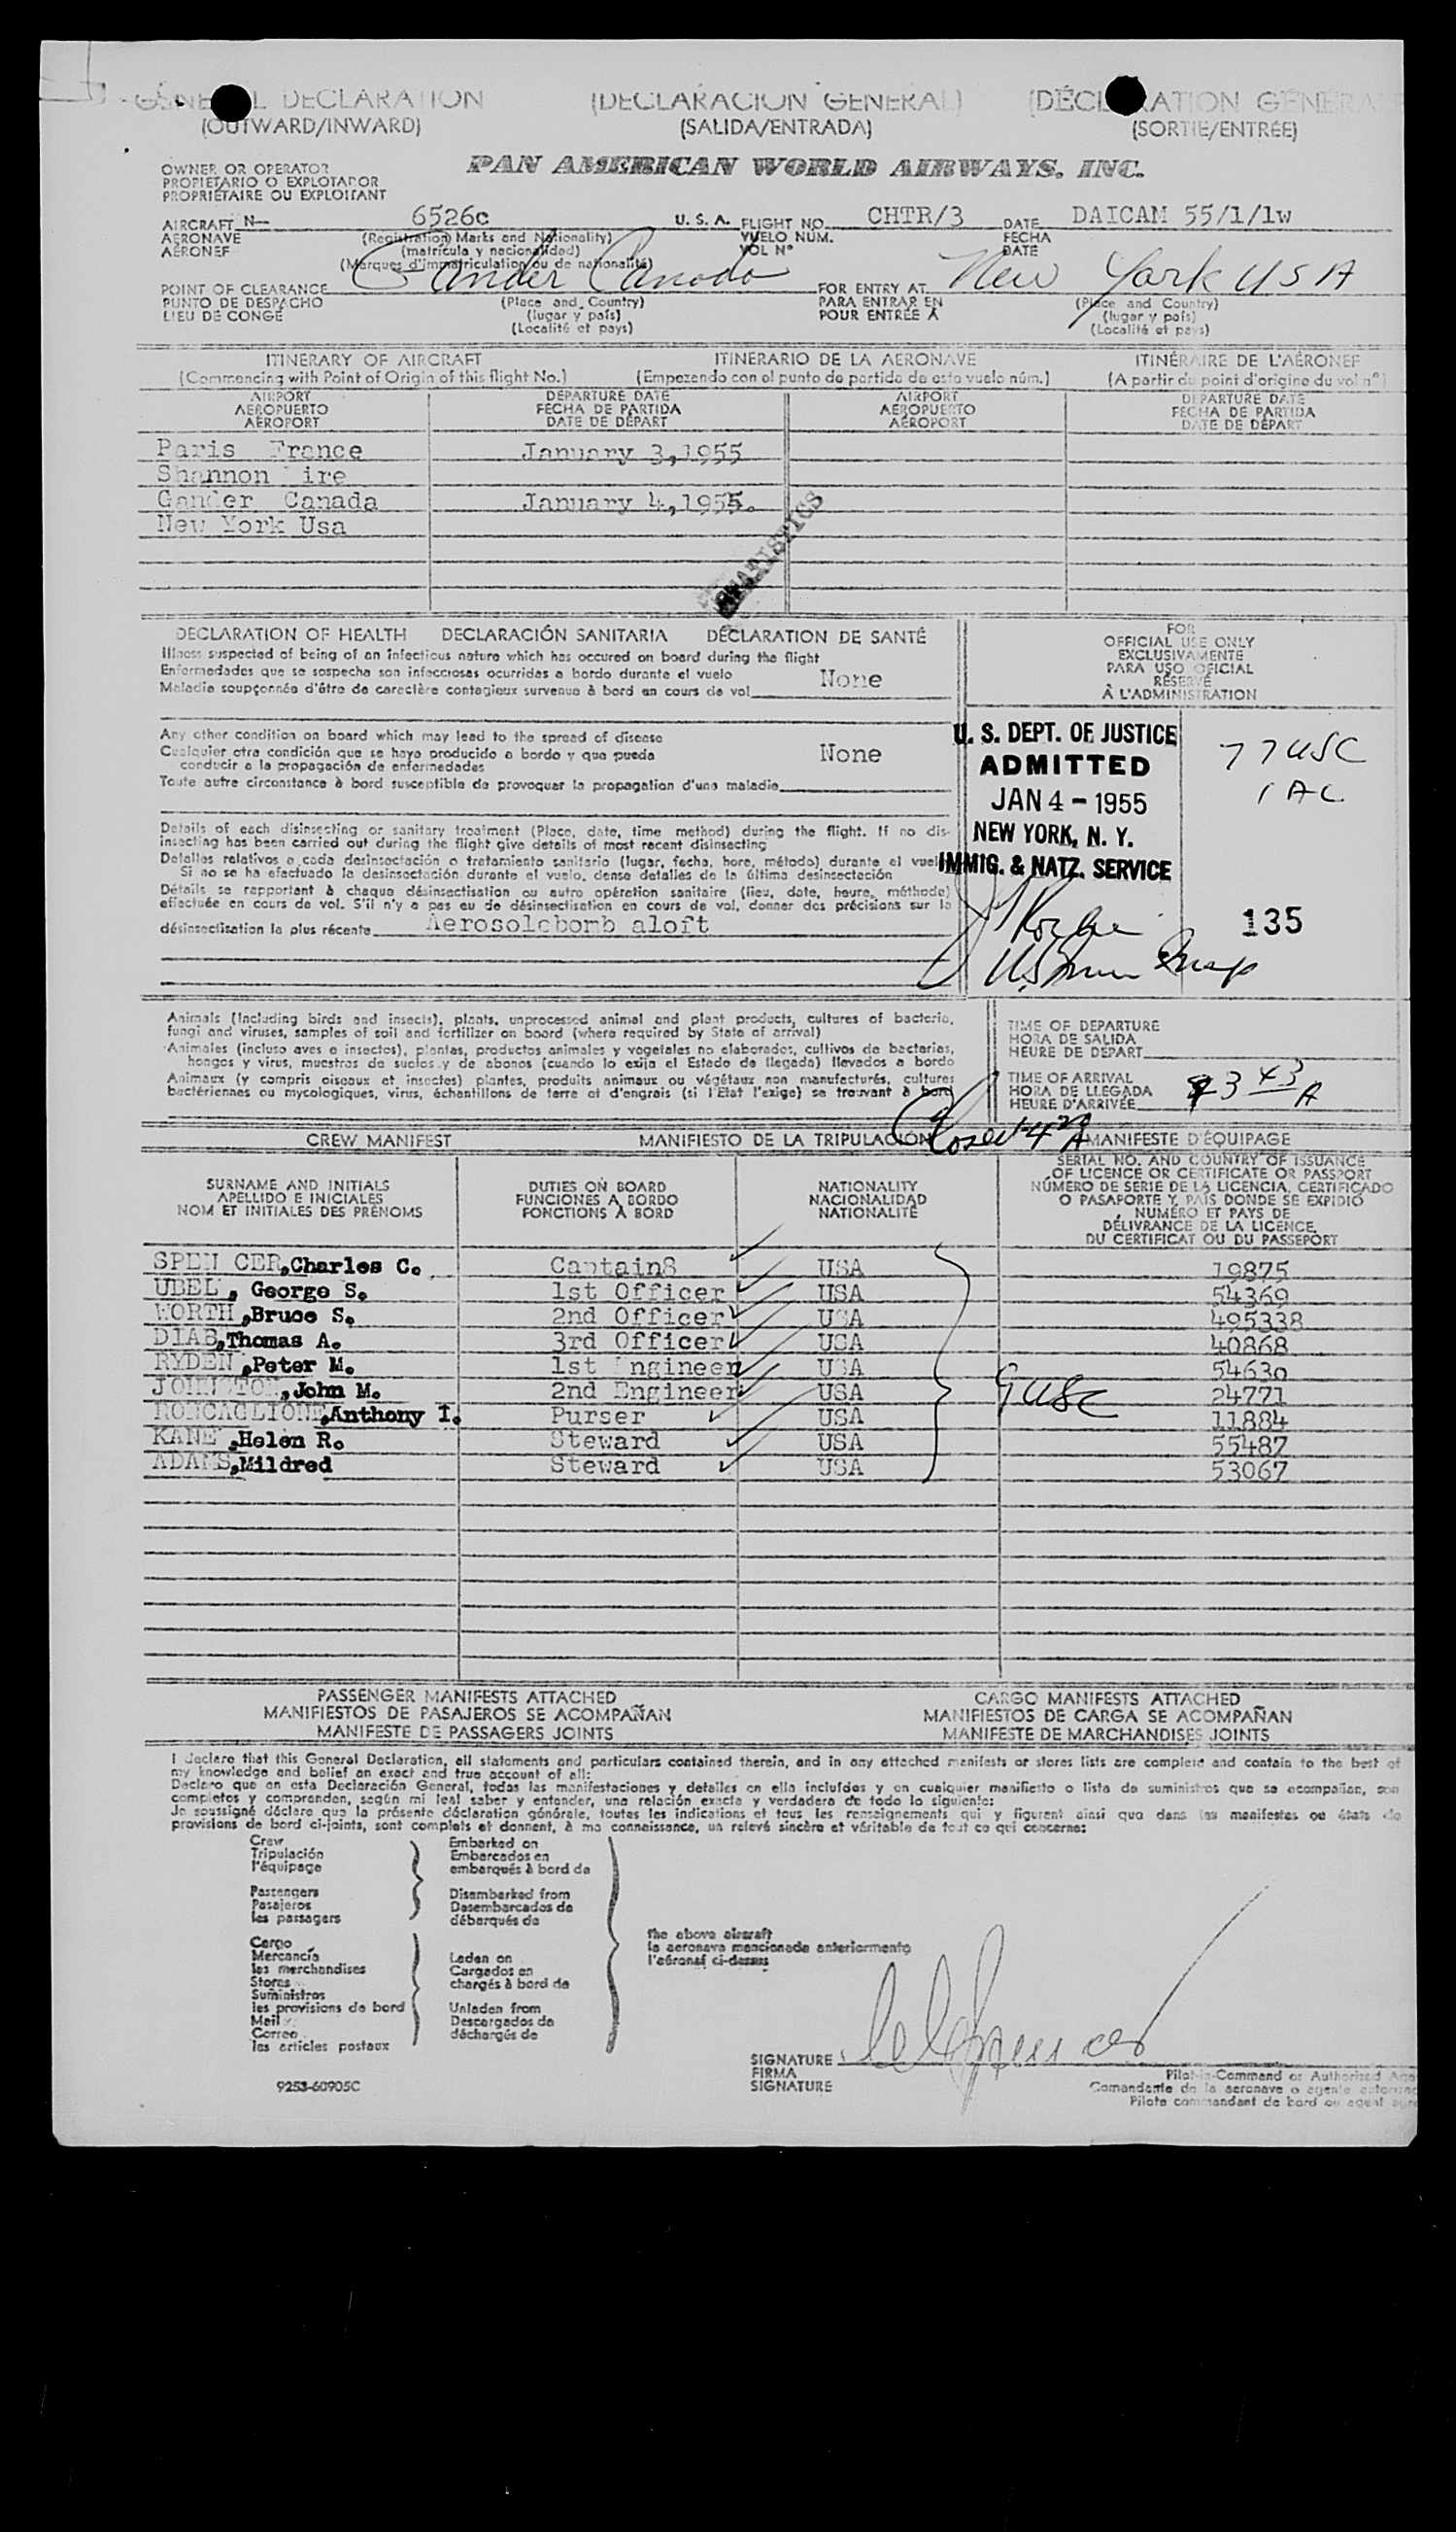 GENERAL DECLARATION (DECLARACION GENERAL) (DÉCLARATION GÉNÉRA
(OUTWARD/INWARD) (SALIDA/ENTRADA) (SORTIE/ENTRÉE)
OWNER OR OPERATOR
PROPIETARIO O EXPLOTADOR
PROPRIÉTAIRE OU EXPLOITANT
PAN AMERICAN WORLD AIRWAYS, INC.
AIRCRAFT N— 6526c U. S. A. FLIGHT NO. CHTR/3 DATE DAICAM 55/1/1w
AERONAVE (Registration) Marks and Nationality) VUELO NÚM. FECHA
AÉRONEF (matrícula y nacionalidad) VOL N° DATE
(Marques d'immatriculation ou de nationalité)
POINT OF CLEARANCE Gander Canada FOR ENTRY AT New York USA
PUNTO DE DESPACHO (Place and Country) PARA ENTRAR EN (Place and Country)
LIEU DE CONGÉ (lugar y país) POUR ENTRÉE À (lugar y país)
(Localité et pays) (Localité et pays)
ITINERARY OF AIRCRAFT ITINERARIO DE LA AERONAVE ITINÉRAIRE DE L'AÉRONEF
(Commencing with Point of Origin of this flight No.) (Empezando con el punto de partida de este vuelo núm.) (A partir du point d'origine du vol n°)
AIRPORT DEPARTURE DATE AIRPORT DEPARTURE DATE
AEROPUERTO FECHA DE PARTIDA AEROPUERTO FECHA DE PARTIDA
AÉROPORT DATE DE DÉPART AÉROPORT DATE DE DÉPART
Paris France January 3,1955
Shannon ire
Gander Canada January 4,1955.
New York Usa
DECLARATION OF HEALTH DECLARACIÓN SANITARIA DÉCLARATION DE SANTÉ
Illness suspected of being of an infectious nature which has occured on board during the flight
Enfermedades que se sospecha son infecciosas ocurridas a bordo durante el vuelo None
Maladie soupçonnée d'être de caractère contagieux survenue à bord en cours de vol
Any other condition on board which may lead to the spread of disease
Cualquier otra condición que se haya producido a bordo y que pueda None
conducir a la propagación de enfermedades
Toute autre circonstance à bord susceptible de provoquer la propagation d'une maladie
Details of each disinsecting or sanitary treatment (Place, date, time method) during the flight. If no dis-
insecting has been carried out during the flight give details of most recent disinsecting
Detalles relativos a cada desinsectación o tratamiento sanitario (lugar, fecha, hora, método) durante el vuelo
Si no se ha efectuado la desinsectación durante el vuelo, dense detalles de la última desinsectación
Détails se rapportant à chaque désinsectisation ou autre opération sanitaire (lieu, date, heure, méthode)
effectuée en cours de vol. S'il n'y a pas eu de désinsectisation en cours de vol, donner des précisions sur la
désinsectisation la plus récente Aerosolebomb aloft
FOR
OFFICIAL USE ONLY
EXCLUSIVAMENTE
PARA USO OFICIAL
RÉSERVÉ
À L'ADMINISTRATION
U. S. DEPT. OF JUSTICE
ADMITTED
JAN 4 - 1955
NEW YORK, N. Y.
IMMIG. & NATZ. SERVICE
77 USC
1 AC
135
Animals (Including birds and insects), plants, unprocessed animal and plant products, cultures of bacteria,
fungi and viruses, samples of soil and fertilizer on board (where required by State of arrival)
Animales (incluso aves e insectos), plantas, productos animales y vegetales no elaborados, cultivos de bacterias,
hongos y virus, muestras de suelos y de abonos (cuando lo exija el Estado de llegada) llevados a bordo
Animaux (y compris oiseaux et insectes) plantes, produits animaux ou végétaux non manufacturés, cultures
bactériennes ou mycologiques, virus, échantillons de terre et d'engrais (si l'Etat l'exige) se trouvant à bord
TIME OF DEPARTURE
HORA DE SALIDA
HEURE DE DÉPART
TIME OF ARRIVAL
HORA DE LLEGADA 3 43 A
HEURE D'ARRIVÉE
Closed 4 20 A
CREW MANIFEST MANIFIESTO DE LA TRIPULACIÓN MANIFESTE D'ÉQUIPAGE
SURNAME AND INITIALS DUTIES ON BOARD NATIONALITY SERIAL NO. AND COUNTRY OF ISSUANCE
APELLIDO E INICIALES FUNCIONES A BORDO NACIONALIDAD OF LICENCE OR CERTIFICATE OR PASSPORT
NOM ET INITIALES DES PRÉNOMS FONCTIONS À BORD NATIONALITÉ NÚMERO DE SERIE DE LA LICENCIA, CERTIFICADO
O PASAPORTE Y PAÍS DONDE SE EXPIDIÓ
NUMÉRO ET PAYS DE
DÉLIVRANCE DE LA LICENCE,
DU CERTIFICAT OU DU PASSEPORT
SPENCER,Charles C. Captain8 USA 19875
UBEL, George S. 1st Officer USA 54369
WORTH,Bruce S. 2nd Officer USA 495338
DIAB,Thomas A. 3rd Officer USA 40868
RYDEN,Peter M. 1st Engineer USA 54630
JOHNSTON,John M. 2nd Engineer USA 24771
RONCAGLIONE,Anthony I. Purser USA 11884
KANE,Helen R. Steward USA 55487
ADAMS,Mildred Steward USA 53067
9 USC
PASSENGER MANIFESTS ATTACHED CARGO MANIFESTS ATTACHED
MANIFIESTOS DE PASAJEROS SE ACOMPAÑAN MANIFIESTOS DE CARGA SE ACOMPAÑAN
MANIFESTE DE PASSAGERS JOINTS MANIFESTE DE MARCHANDISES JOINTS
I declare that this General Declaration, all statements and particulars contained therein, and in any attached manifests or stores lists are complete and contain to the best of
my knowledge and belief an exact and true account of all:
Declaro que en esta Declaración General, todas las manifestaciones y detalles en ella incluídos y en cualquier manifiesto o lista de suministros que se acompañan, son
completos y comprenden, según mi leal saber y entender, una relación exacta y verdadera de todo lo siguiente:
Je soussigné déclare que la présente déclaration générale, toutes les indications et tous les renseignements qui y figurent ainsi que dans les manifestes ou états de
provisions de bord ci-joints, sont complets et donnent, à ma connaissance, un relevé sincère et véritable de tout ce qui concerne:
Crew Embarked on
Tripulación Embarcados en
l'équipage embarqués à bord de
Passengers Disembarked from
Pasajeros Desembarcados de
les passagers débarqués de
Cargo the above aircraft
Mercancía Laden on la aeronave mencionada anteriormente
les merchandises Cargados en l'aéronef ci-dessus
Stores chargés à bord de
Suministros
les provisions de bord Unladen from
Mail Descargados de
Correo déchargés de
les articles postaux
SIGNATURE
FIRMA Pilot-in-Command or Authorized Age
SIGNATURE Comandante de la aeronave o agente autoriza
Pilote commandant de bord ou agent agré
9253-60905C